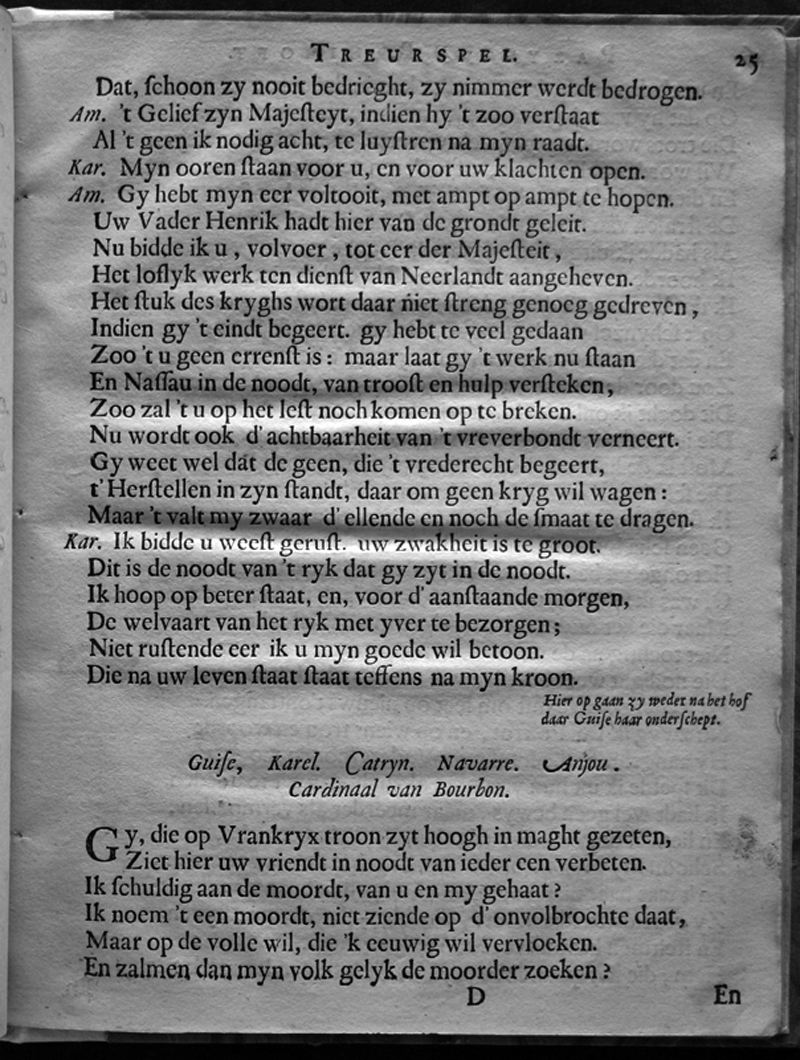 TREURSPEL. 25
Dat, ſchoon zy nooit bedrieght, zy nimmer werdt bedrogen.
Am. 't Gelief zyn Majeſteyt, indien hy 't zoo verſtaat
Al 't geen ik nodig acht, te luyſtren na myn raadt.
Kar. Myn ooren ſtaan voor u, en voor uw klachten open.
Am. Gy hebt myn eer voltooit, met ampt op ampt te hopen.
Uw Vader Henrik hadt hier van de grondt geleit.
Nu bidde ik u, volvoer, tot eer der Majeſteit,
Het loflyk werk ten dienſt van Neerlandt aangeheven.
Het ſtuk des kryghs wort daar niet ſtreng genoeg gedreven,
Indien gy 't eindt begeert. gy hebt te veel gedaan
Zoo 't u geen errenſt is: maar laat gy 't werk nu ſtaan
En Naſſau in de noodt, van trooſt en hulp verſteken,
Zoo zal 't u op het leſt noch komen op te breken.
Nu wordt ook d'achtbaarheit van 't vreverbondt verneert.
Gy weet wel dat de geen, die 't vrederecht begeert,
t'Herſtellen in zyn ſtandt, daar om geen kryg wil wagen:
Maar 't valt my zwaar d'ellende en noch de ſmaat te dragen.
Kar. Ik bidde u weeſt geruſt. uw zwakheit is te groot.
Dit is de noodt van 't ryk dat gy zyt in de noodt.
Ik hoop op beter ſtaat, en, voor d'aanſtaande morgen,
De welvaart van het ryk met yver te bezorgen;
Niet ruſtende eer ik u myn goede wil betoon.
Die na uw leven ſtaat ſtaat teffens na myn kroon.
Hier op gaan zy weder na het hof
daar Guiſe haar onderſchept.
Guiſe, Karel. Catryn. Navarre. Anjou.
Cardinaal van Bourbon.
Gy, die op Vrankryx troon zyt hoogh in maght gezeten,
Ziet hier uw vriendt in noodt van ieder een verbeten.
Ik ſchuldig aan de moordt, van u en my gehaat?
Ik noem 't een moordt, niet ziende op d'onvolbrochte daat,
Maar op de volle wil, die 'k eeuwig wil vervloeken.
En zalmen dan myn volk gelyk de moorder zoeken?
D En